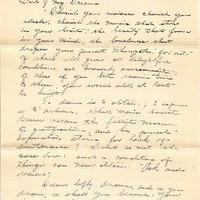 Dare of My Dreams
Cherish your visions; cherish your
ideals; cherish the music that stirs
in your heart, the beauty that forms
in your mind, the loveliness that
drapes your purest thoughts, for out
of them will grow all delightful
conditions, all heavenly environment;
of these, if you but remain true
to them, your world will at last
be built.
To desire is to obtain; to aspire
is to achieve. Shall man's basest
desires receive the fullest measure
of gratification, and his purest
aspirations starve for lack of
sustenance? Such is not the
Law: such a condition of
things can never obtain: "Ask and
receive."
Dream lofty dreams, and as you
dream, so shall you become. Your